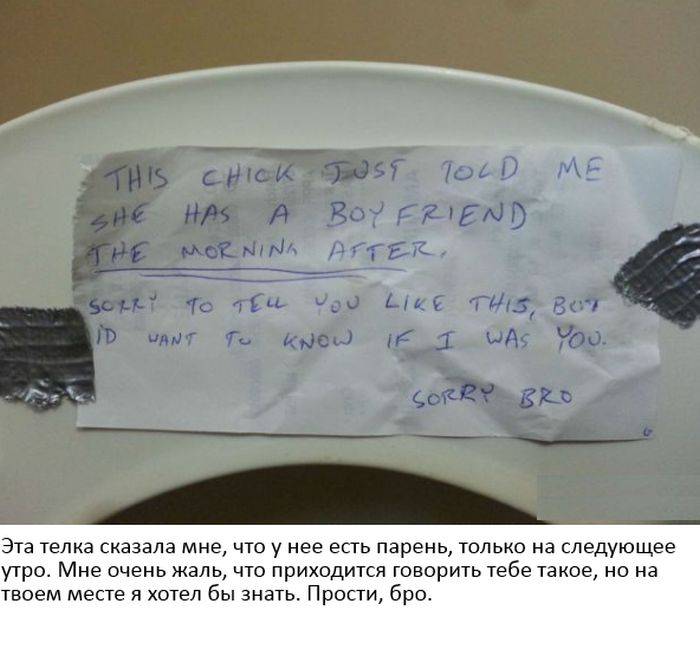 THIS CHICK JUST TOLD ME
SHE HAS A BOYFRIEND
THE MORNING AFTER.
SORRY TO TELL YOU LIKE THIS, BUT
I'D WANT TO KNOW IF I WAS YOU.
SORRY BRO
Эта телка сказала мне, что у нее есть парень, только на следующее
утро. Мне очень жаль, что приходится говорить тебе такое, но на
твоем месте я хотел бы знать. Прости, бро.